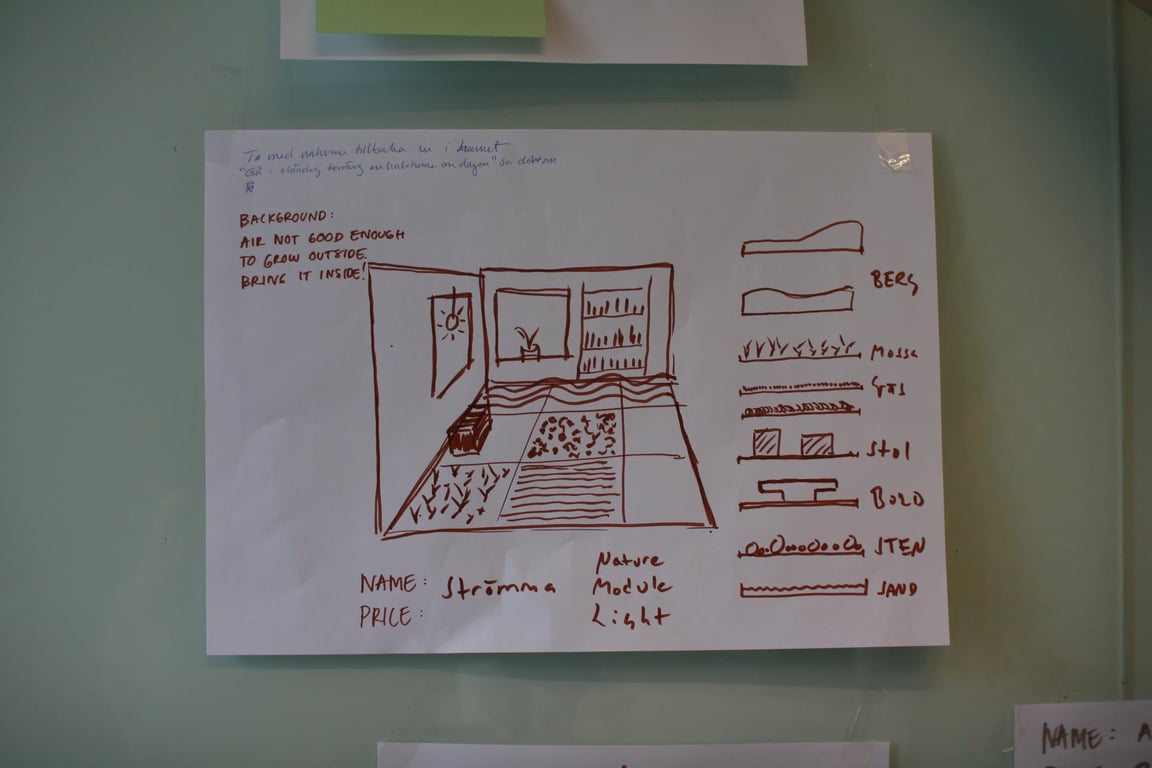 Ta med naturen tillbaka in i hemmet
"Gå i oländig terräng en halvtimme om dagen" sa doktorn.
BACKGROUND:
AIR NOT GOOD ENOUGH
TO GROW OUTSIDE.
BRING IT INSIDE!
BERG
Mossa
Gräs
Stol
BORD
STEN
SAND
NAME: Strömma
PRICE:
Nature
Module
Light
NAME: A